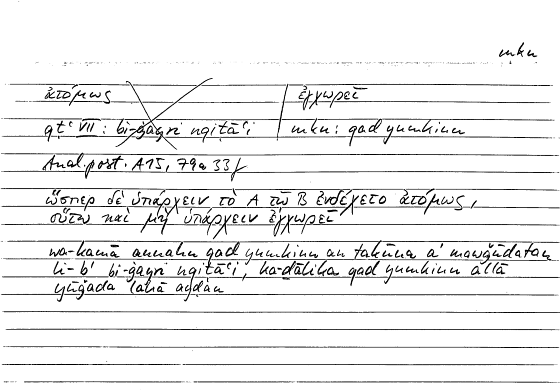 mkn
ἀτόμως ἐγχωρεῖ
qṭʿ VII : bi-ġayri nqiṭāʿi mkn : qad yumkinu
Anal. post. A 15, 79a 33 f
ὥσπερ δὲ ὑπάρχειν τὸ A τῷ B ἐνδέχετο ἀτόμως,
οὕτω καὶ μὴ ὑπάρχειν ἐγχωρεῖ
wa-kamā annahu qad yumkinu an takūna a' mawǧūdatan
li-b' bi-ġayri nqiṭāʿi, ka-ḏālika qad yumkinu allā
yūǧada lahā aydan